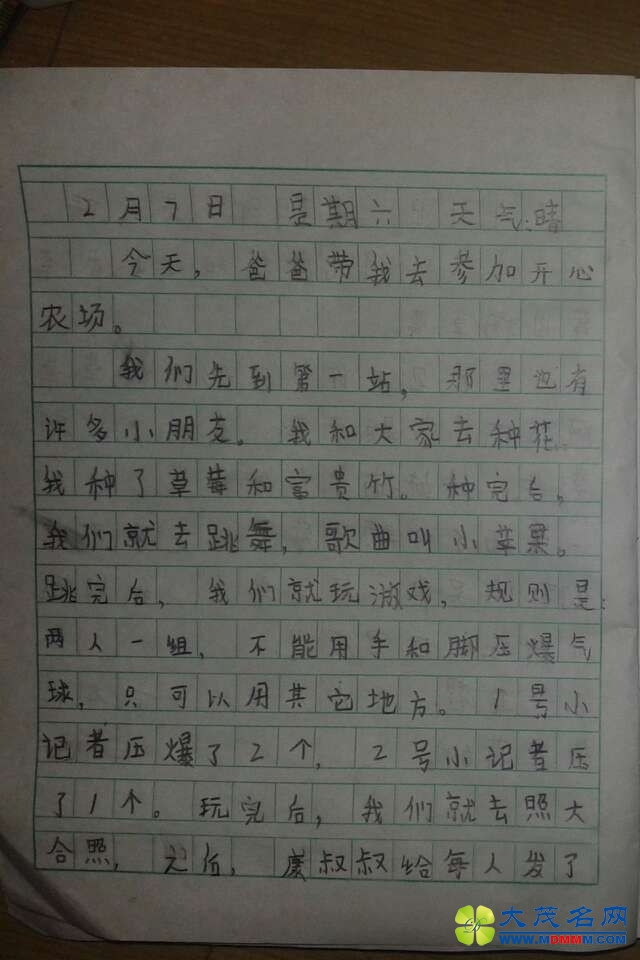 2月7日 是期六 天气:晴
今天,爸爸带我去参加开心
农场。
我们先到第一站,那里也有
许多小朋友。我和大家去种花,
我种了草莓和富贵竹。种完后,
我们就去跳舞,歌曲叫小苹果。
跳完后,我们就玩游戏,规则是:
两人一组,不能用手和脚压爆气
球,只可以用其它地方。1号小
记者压爆了2个,2号小记者压
了1个。玩完后,我们就去照大
合照,之后,康叔叔给每人发了
大茂名网
WWW.MDMMM.COM